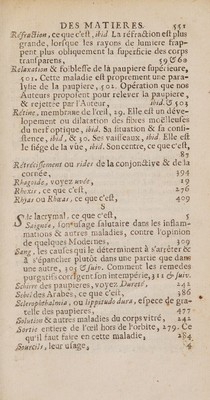 DES MATIERES. 551
Réfraction, ce que c'est, ibid. La réfraction est plus
grande, lorsque les rayons de lumiere frap-
pent plus obliquement la superficie des corps
transparens, 59 & 60
Relaxation & foiblesse de la paupiere supérieure,
501. Cette maladie est proprement une para-
lysie de la paupiere, 502. Opération que nos
Auteurs proposent pour relever la paupiere,
& rejettée par l'Auteur, ibid. & 503
Rétine, membrane de l'œil, 29. Elle est un déve-
lopement ou dilatation des fibres moëlleuses
du nerf optique, ibid. Sa situation & sa consi-
stence, ibid. & 30. Ses vaisseaux, ibid. Elle est
le siége de la vûe, ibid. Son centre, ce que c'est,
87
Rétrécissement ou rides de la conjonctive & de la
cornée, 394
Rhagoide, voyez uvée, 19
Rhexis, ce que c'est, 276
Rhyas ou Rhœas, ce que c'est, 409
S
Sac lacrymal, ce que c'est, 5
Saignée, son usage salutaire dans les inflam-
mations & autres maladies, contre l'opinion
de quelques Modernes, 309
Sang, les causes qui le déterminent à s'arrêter &
à s'épancher plutôt dans une partie que dans
une autre, 305 & suiv. Comment les remedes
purgatifs corrigent son intempérie, 311 & suiv.
Schire des paupieres, voyez Dureté, 242
Sebel des Arabes, ce que c'est, 386
Sclerophthalmia, ou lippitudo dura, espece de gra-
telle des paupieres, 477
Solution & autres maladies du corps vitré, 242
Sortie entiere de l'œil hors de l'orbite, 279. Ce
qu'il faut faire en cette maladie, 284
Sourcils, leur usage, 4